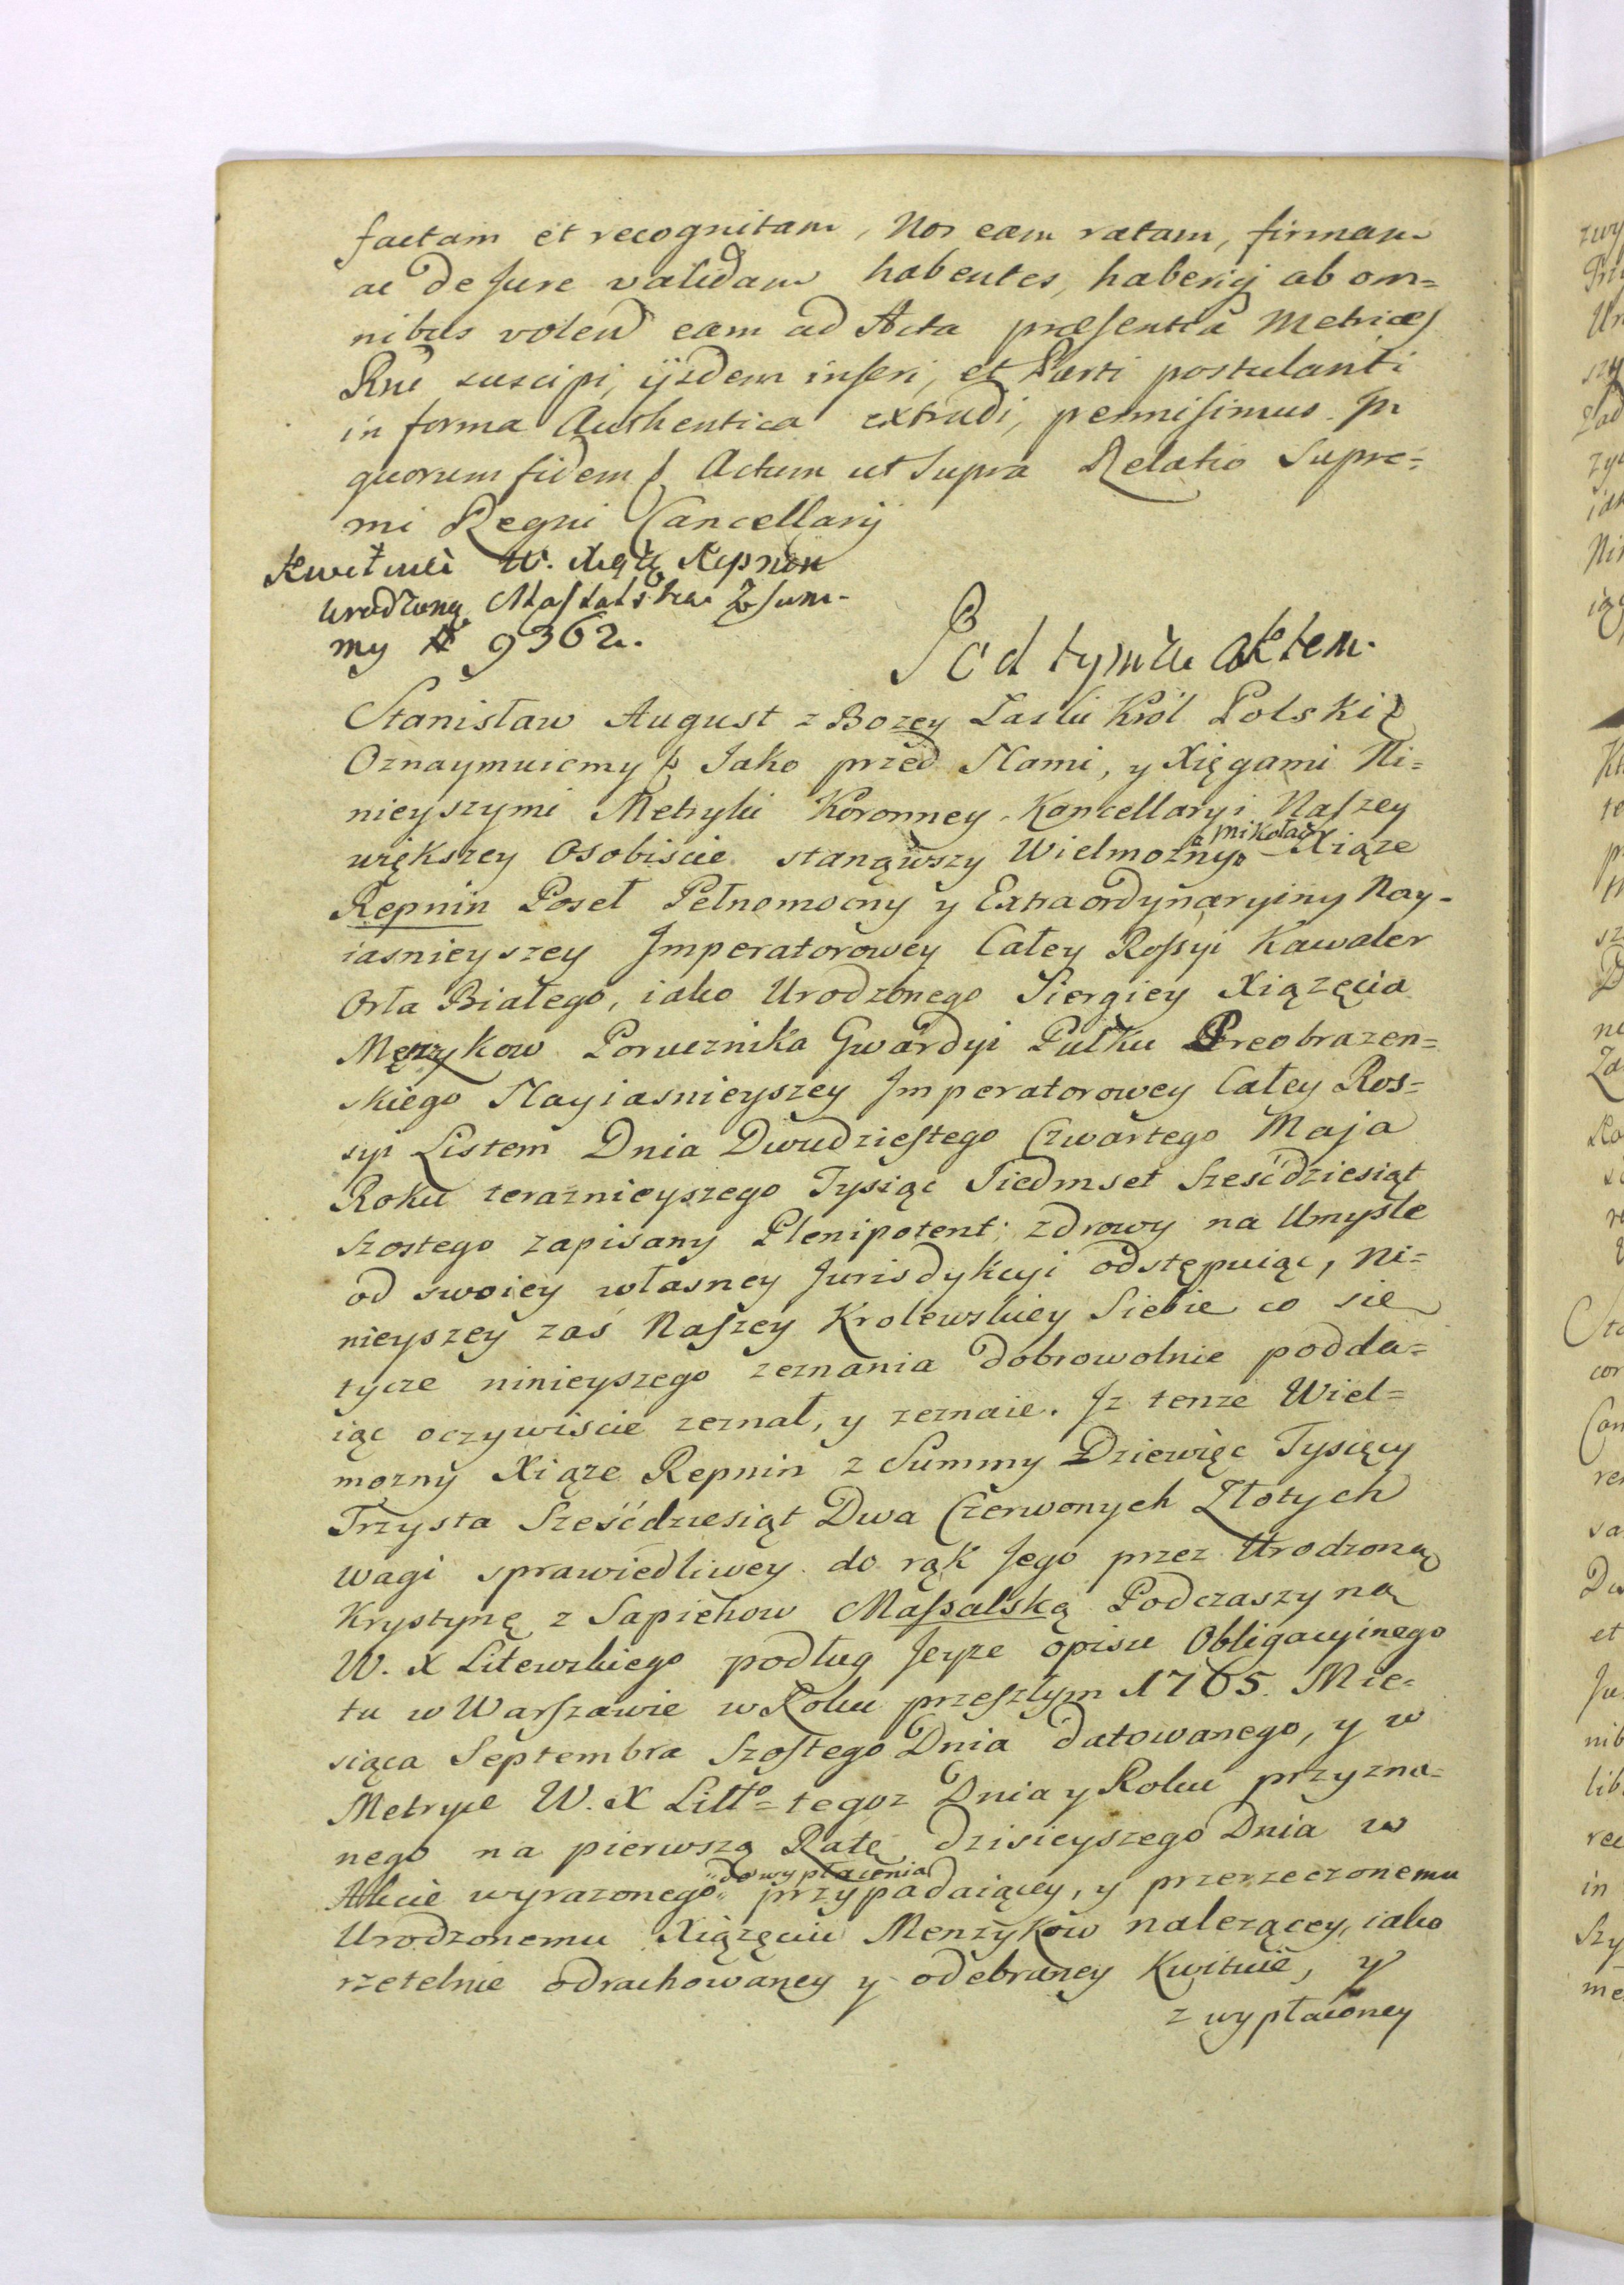 factam et recognitam, Nos eam ratam, firmam
ac de Jure validam habentes, haberiq ab om=
nibus volen eam ad Acta præsentia Metrices
Rni suscipi, ijsdem inseri, et Parti postulanti
in forma Authentica extradi, permisimus. In
quorum fidem Actum ut supra Relatio Supre=
mi Regni Cancellarij
Kwituie W. Xiąże Repnin
Urodzoną Massalską z Sum-
my # 9362.
Pod tymże aktem.
Stanisław August z Bozey Łaski Król Polski
Oznaymuiemy Jako przed Nami, y Xięgami Ni=
nieyszymi Metryki Koronney Kancellaryi Naszey
większey Osobiscie stanąwszy Wielmozny Mikołay Xiąze
Repnin Poseł Pełnomocny y Extraordynaryiny Nay-
iasnieyszey Imperatorowey Całey Rossyi Kawaler
Orła Białego, iako Urodzonego Siergiey Xiązęcia
Męzykow Porucznika Gwardyi Pułku Preobrazen=
skiego Nayiasnieyszey Imperatorowey Całey Ros=
syi Listem Dnia Dwudziestego Czwartego Maja
Roku teraznieyszego Tysiąc Siedmset Sześćdziesiąt
Szostego zapisany Plenipotent; zdrowy na Umysle
od swoiey własney Jurisdykcyi odstępuiąc, Ni=
nieyszey zaś Naszey Krolewskiey Siebie co się
tycze ninieyszego zeznania dobrowolnie podda=
iąc oczywiscie zeznał, y zeznaie. Iz tenze Wiel=
mozny Xiąze Repnin z Summy Dziewięc Tysięcy
Trzysta Sześćdziesiąt Dwa Czerwonych Złotych
wagi sprawiedliwey do rąk Jego przez Urodzoną
Krystynę z Sapiehow Massalską Podczaszyną
W. X Litewskiego podług Jeyze opisu Obligacyinego
tu w Warszawie w Roku przeszłym 1765. Mie=
siąca Septembra Szostego Dnia datowanego, y w
Metryce W. X Litto= tegoz Dnia y Roku przyzna=
nego na pierwszą Ratę dzisieyszego Dnia w
Akcie wyrazonego do wypłacenia przypadaiącey, y przerzeczonemu
Urodzonemu Xiązęciu Menzykow nalezącey, iako
rzetelnie odrachowaney y odebraney Kwituie, y
z wypłaconey